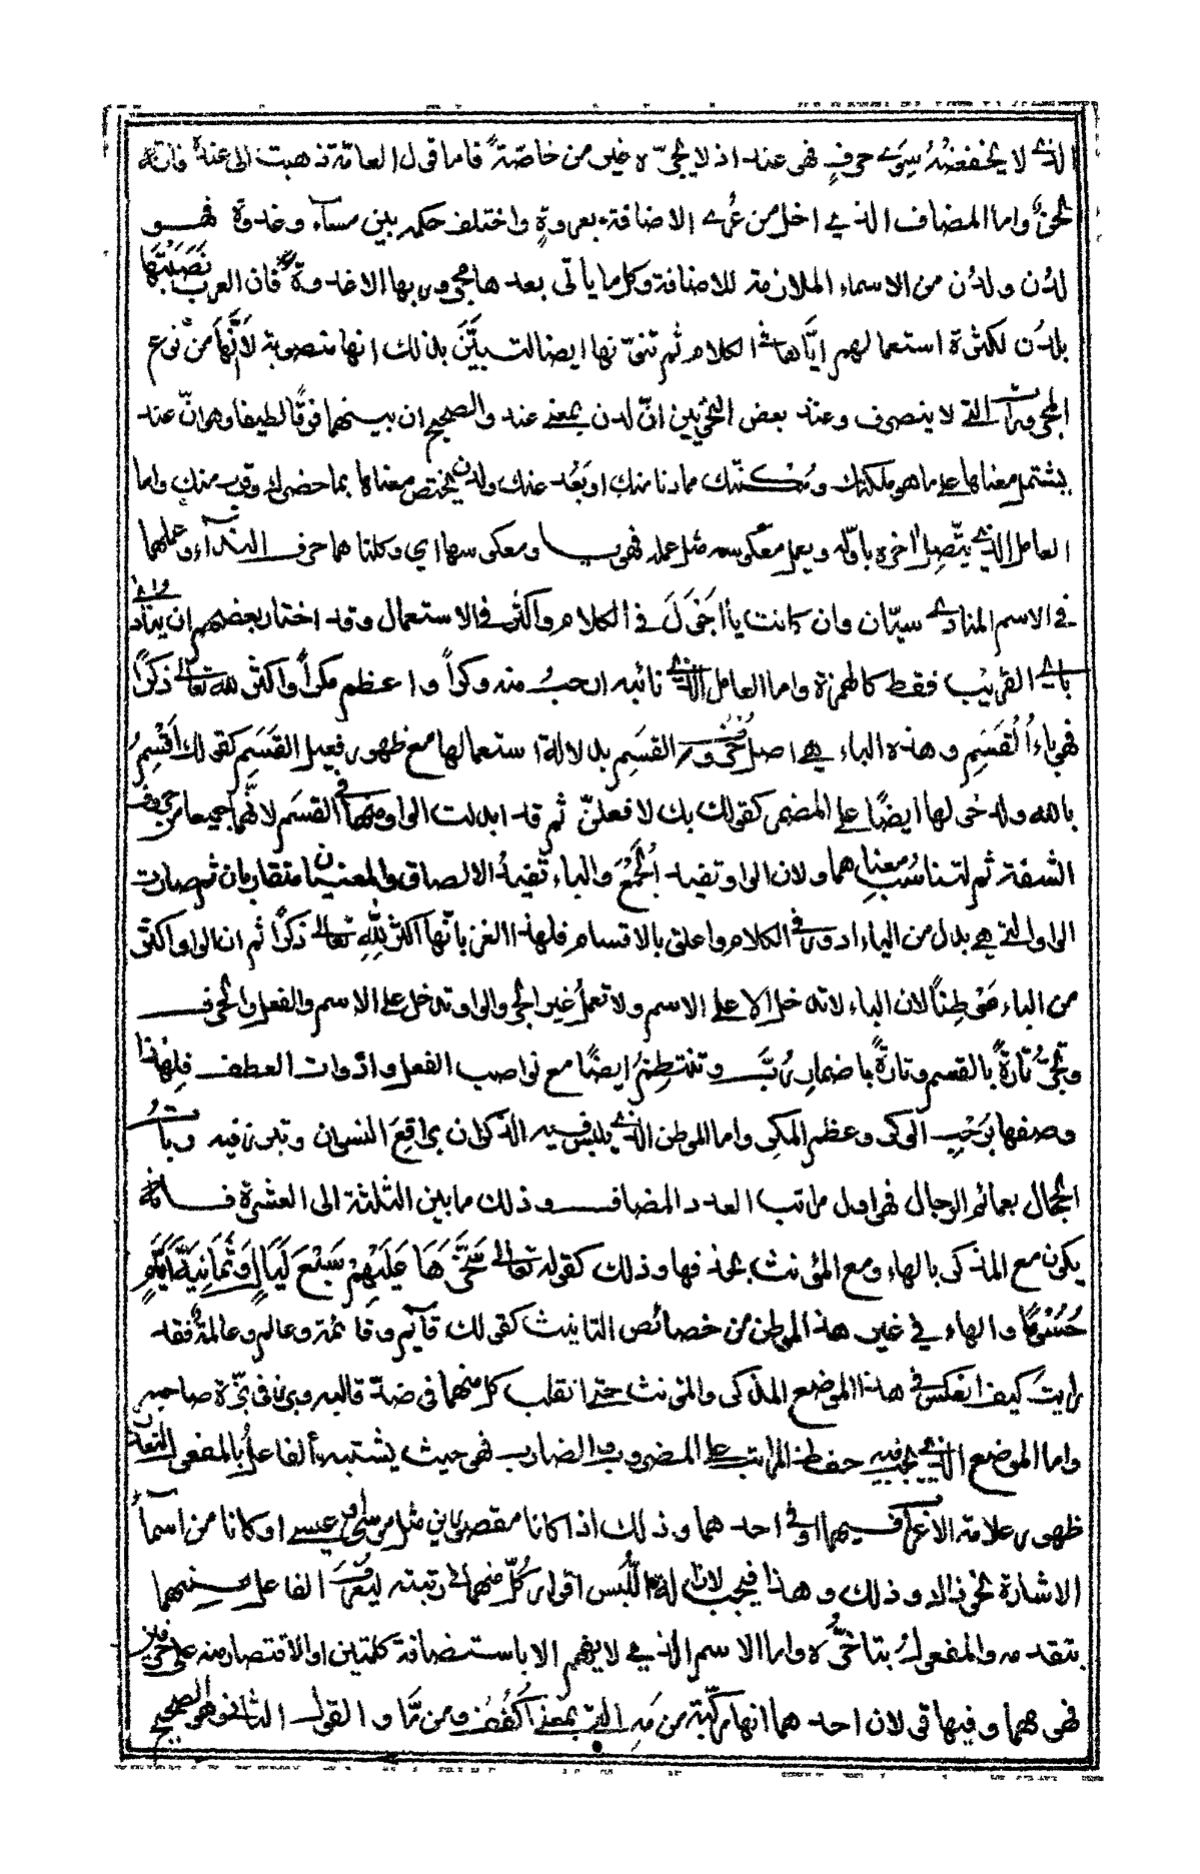 الذي لا يخفضه سوى حرف فهو عند اذ لا يجرّه غير من خاصّة فاما قول العامّة ذهبت الى عنده فانّه
لحن واما المضاف الذي اخل من عُرى الاضافة بعروةٍ واختلف حكمه بين مساء وغدوة فهو
لدُن ولدُن من الاسماء الملازمة للاضافة وكل ما يأتى بعدها مجرور بها الا غدوة فان العرب نَصَبَتْها
بلدُن لكثرة استعمالهم ايّاها في الكلام ثم تنوّنها ايضا لتبيّن بذلك انها منصوبة لا أنّها من نوع
المجرورات التي لا ينصرف وعند بعض النحويين انّ لدن بمعنى عند والصحيح ان بينهما فرقًا لطيفا وهو انّ عند
يشتمل معناها على ما هو ملكتك ومُكنتك مما دنا منك او بَعُد عنك ولدن يختص معناها بما حضرك وقرب منك واما
العامل الذي يتّصل اخره باوّله ويعمل معكوسه مثل عمله فهو يا ومعكوسها اي وكلتاهما حرف النداء وعملهما
في الاسم المنادى سيّان وان كانت يا أجول في الكلام واكثر في الاستعمال وقد اختار بعضهم ان ينادى
باى القريب فقط كالهمزة واما العامل الذي نائبه ارحب منه وكرًا واعظم مكرًا واكثر لله تعالى ذكرًا
فهو باءُ القَسَمِ وهذه الباء هى اصل حروف القسَم بدلالة استعمالها مع ظهور فعل القسَم كقولك اُقسِمُ
بالله ولدخولها ايضًا على المضمر كقولك بك لافعلنّ ثم قد ابدلت الواو منها في القسَم لانهما جميعا من حروف
الشفة ثم لتناسُب معنييهما ولان الواو تفيد الجمع والباء تفيدُ الالصاق والمعنيان متقاربان ثم صارت
الواو التي هي بدل من الباء ادور في الكلام واعلق بالاقسام فلهذا الغز بانّها اكثر لله تعالى ذكرًا ثم ان الواو اكثر
من الباء موطِنًا لان الباء لا تدخل الا على الاسم ولا تعمل غير الجر والواو تدخل على الاسم والفعل والحرف
وتجرُّ تارةً بالقسم وتارةً باضمار رُبّ وتنتظمُ ايضًا مع نواصب الفعل وادوات العطف فلهذا
وصفها برَحب الوكر وعظم المكر واما الموطن الذي يلبس فيه الذكران براقع النسوان وتبرز فيه ربات
الحجال بعمائم الرجال فهو اول مراتب العدد المضاف وذلك ما بين الثلثة الى العشرة فانه
يكون مع المذكر بالهاء ومع المؤنث بحذفها وذلك كقوله تعالى سَخَّرَهَا عَلَيْهِمْ سَبْعَ لَيَالٍ وَثَمَانِيَةَ أَيَّامٍ
حُسُومًا والهاء في غير هذا الموطن من خصائص التانيث كقولك قائم وقائمة وعالم وعالمة فقد
رايت كيف انعكس في هذا الموضع المذكر والمؤنث حتى انقلب كل منهما في ضدّ قالبه وبرز فى بزّة صاحبه
واما الموضع الذي يجب فيه حفظ المراتب على المضروب والضارب فهو حيث يشتبه الفاعل بالمفعول لتعذر
ظهور علامة الاعراب فيهما او في احدهما وذلك اذا كانا مقصورين مثل موسى وعيسى او كانا من اسماء
الاشارة نحو ذاك وذلك وهذا فيجب لازالة اللَّبس اقرار كلّ منهما في رتبته ليُعرف الفاعل منهما
بتقدمه والمفعول بتاخُّره واما الاسم الذي لا يفهم الا باستضافة كلمتين او الاقتصار منه على حرفين
فهو مهما وفيها قولان احدهما انها مركّبة من مه التي بمعنى اُكفُف ومن ما والقول الثانى وهو الصحيح